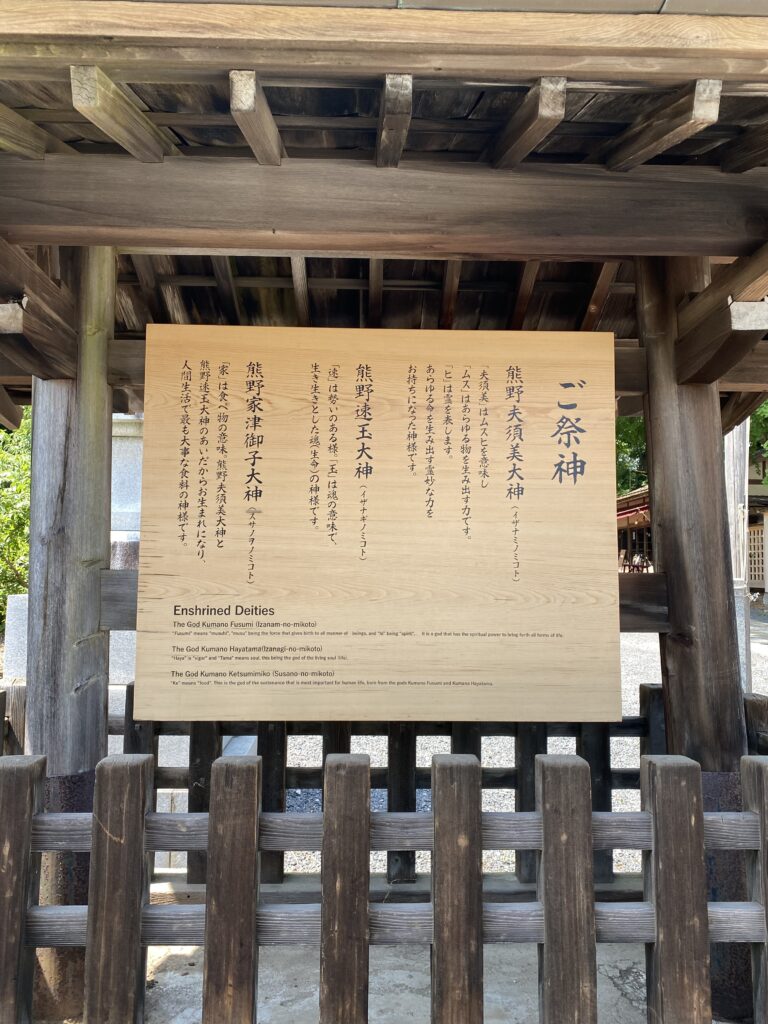 ご祭神
熊野夫須美大神（イザナミノミコト）
「夫須美」はムスヒを意味し
「ムス」はあらゆる物を生み出す力です。
「ヒ」は霊を表します。
あらゆる命を生み出す霊妙な力を
お持ちになった神様です。
熊野速玉大神（イザナギノミコト）
「速」は勢いのある様。「玉」は魂の意味で、
生き生きとした魂（生命）の神様です。
熊野家津御子大神（スサノヲノミコト）
「家」は食べ物の意味。熊野夫須美大神と
熊野速玉大神のあいだからお生まれになり、
人間生活で最も大事な食料の神様です。
Enshrined Deities
The God Kumano Fusumi (Izanam-no-mikoto)
"Fusumi" means "musuhi", "musu" being the force that gives birth to all manner of beings, and "hi" being "spirit". It is a god that has the spiritual power to bring forth all forms of life.
The God Kumano Hayatama(Izanagi-no-mikoto)
"Haya" is "vigor" and "Tama" means soul, this being the god of the living soul (life).
The God Kumano Ketsumimiko (Susano-no-mikoto)
"Ke" means "food". This is the god of the sustenance that is most important for human life, born from the gods Kumano Fusumi and Kumano Hayatama.